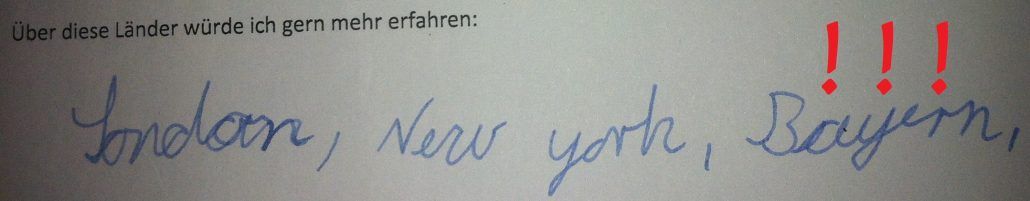 Über diese Länder würde ich gern mehr erfahren:
! ! !
London, New york, Bayern,